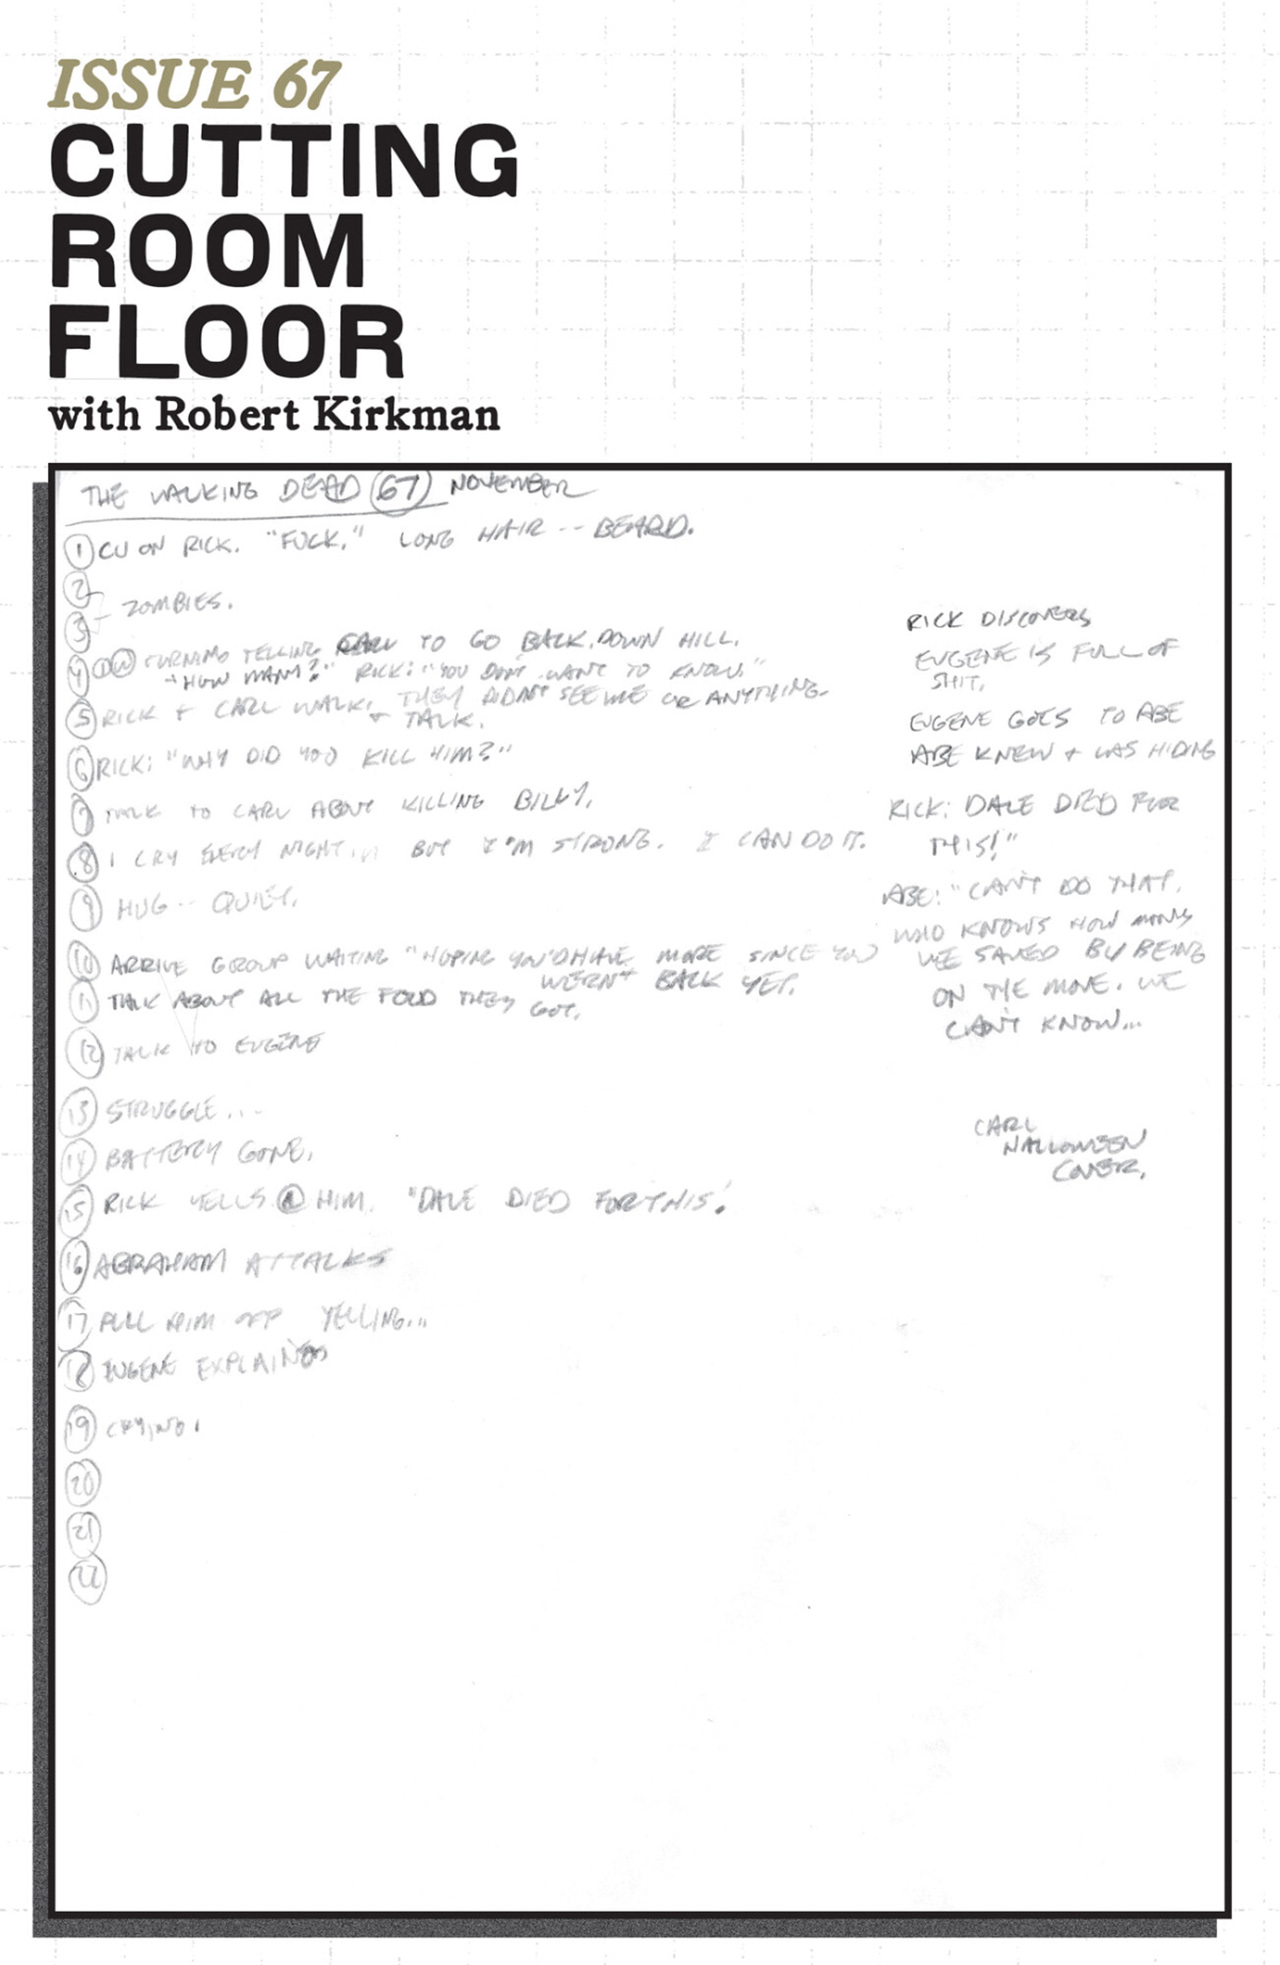 ISSUE 67
CUTTING
ROOM
FLOOR
with Robert Kirkman
THE WALKING DEAD 67 NOVEMBER
1 CU ON RICK. "FUCK." LONG HAIR -- BEARD.
2
3 ZOMBIES.
4 TURNING TELLING CARL TO GO BACK DOWN HILL.
"HOW MANY?" RICK: "YOU DON'T WANT TO KNOW."
5 RICK + CARL WALK. THEY DIDN'T SEE ME OR ANYTHING.
+ TALK.
6 RICK: "WHY DID YOU KILL HIM?"
7 TALK TO CARL ABOUT KILLING BILLY.
8 I CRY EVERY NIGHT... BUT I'M STRONG. I CAN DO IT.
9 HUG -- QUIET.
10 ARRIVE GROUP WAITING "HOPING YOU'D HAVE MORE SINCE YOU
WERN'T BACK YET.
11 TALK ABOUT ALL THE FOOD THEY GOT.
12 TALK TO EUGENE
13 STRUGGLE...
14 BATTERY GONE.
15 RICK YELLS @ HIM. "DALE DIED FOR THIS!
16 ABRAHAM ATTACKS
17 PULL HIM OFF YELLING...
18 EUGENE EXPLAINS
19 CRYING.
20
21
22
RICK DISCOVERS
EUGENE IS FULL OF
SHIT.
EUGENE GOES TO ABE
ABE KNEW + WAS HIDING
RICK: DALE DIED FOR
THIS!"
ABE: "CAN'T DO THAT.
WHO KNOWS HOW MANY
WE SAVED BY BEING
ON THE MOVE. WE
CAN'T KNOW...
CARL
HALLOWEEN
COVER.